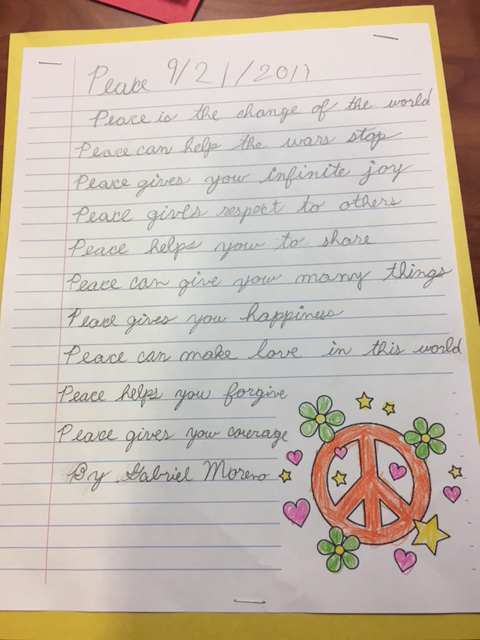 Peace 9/21/2017
Peace is the change of the world
Peace can help the wars stop
Peace gives you infinite joy
Peace gives respect to others
Peace helps you to share
Peace can give you many things
Peace gives you happiness
Peace can make love in this world
Peace helps you forgive
Peace gives you courage
By Gabriel Moreno